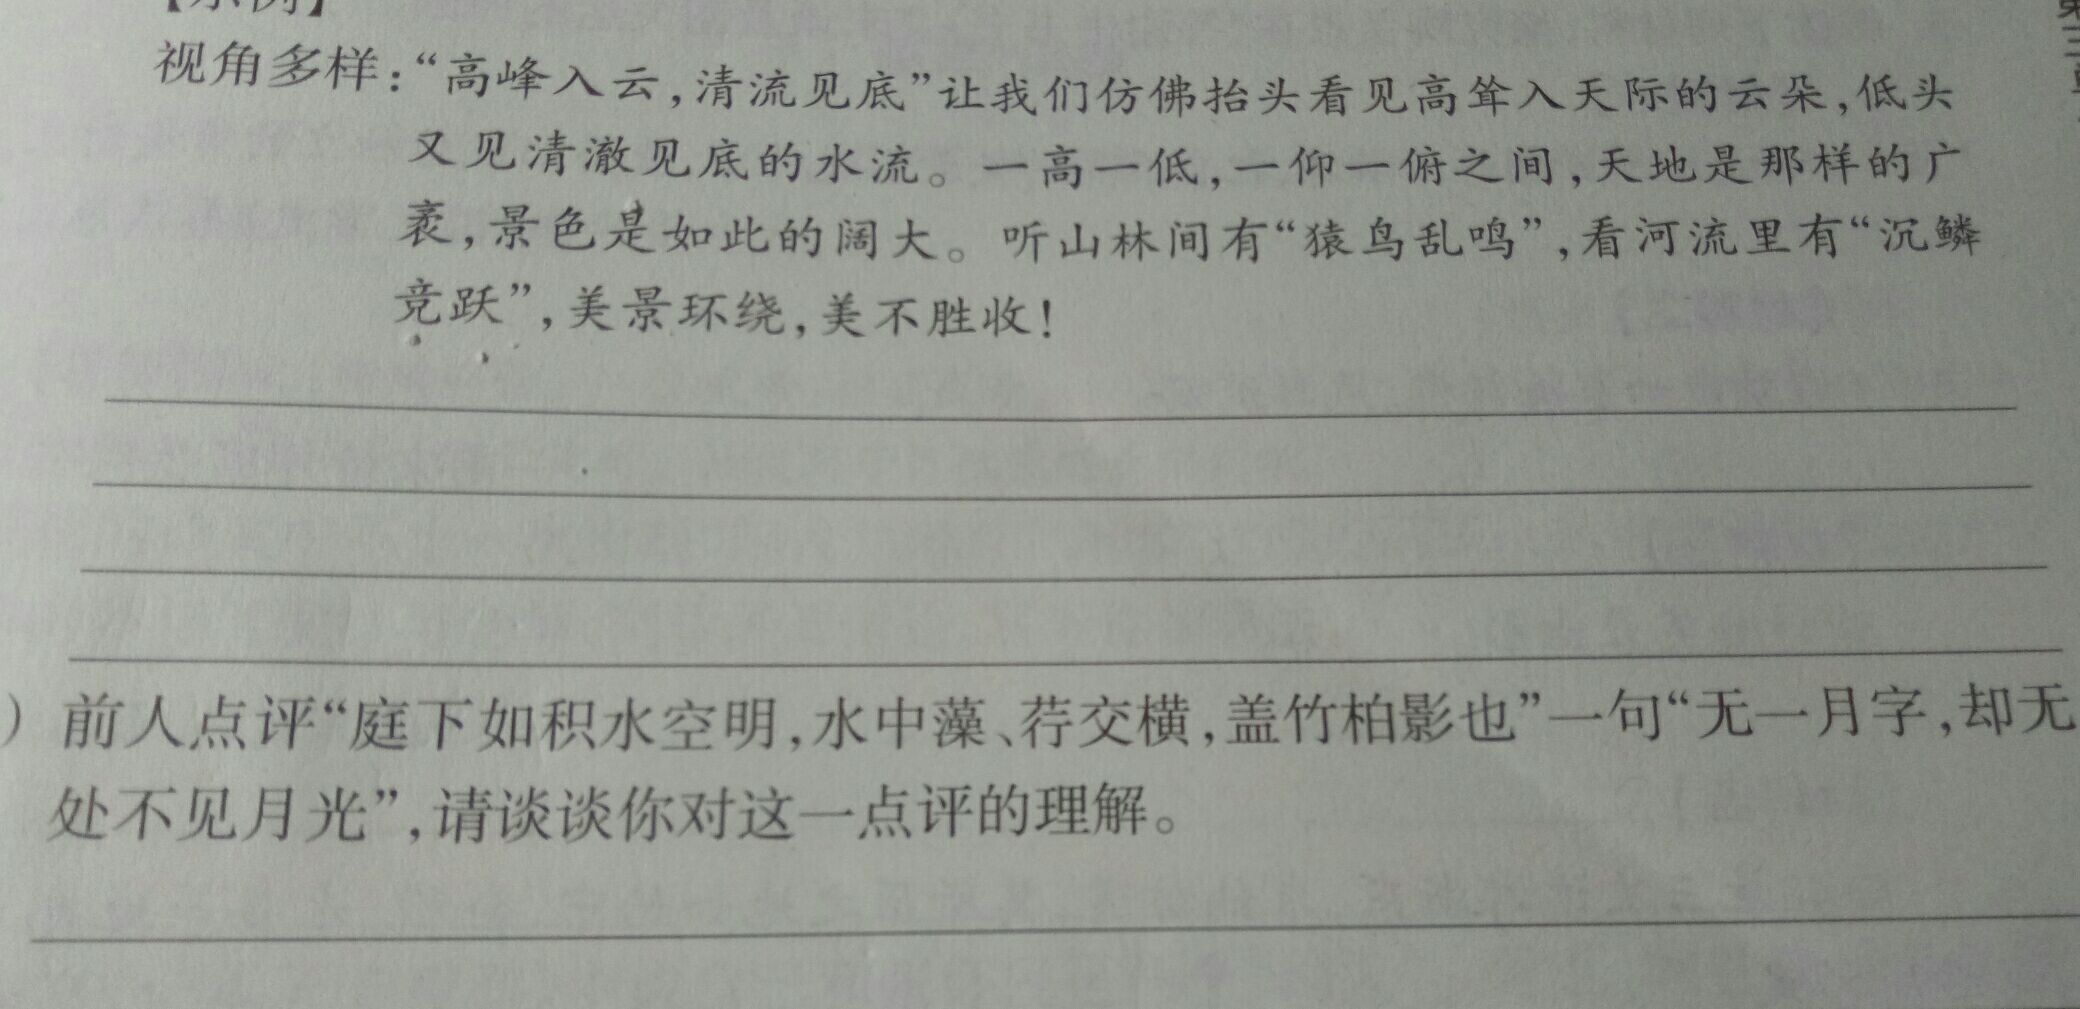 【示例】
视角多样：“高峰入云，清流见底”让我们仿佛抬头看见高耸入天际的云朵，低头
又见清澈见底的水流。一高一低，一仰一俯之间，天地是那样的广
袤，景色是如此的阔大。听山林间有“猿鸟乱鸣”，看河流里有“沉鳞
竞跃”，美景环绕，美不胜收！
）前人点评“庭下如积水空明，水中藻、荇交横，盖竹柏影也”一句“无一月字，却无
处不见月光”，请谈谈你对这一点评的理解。